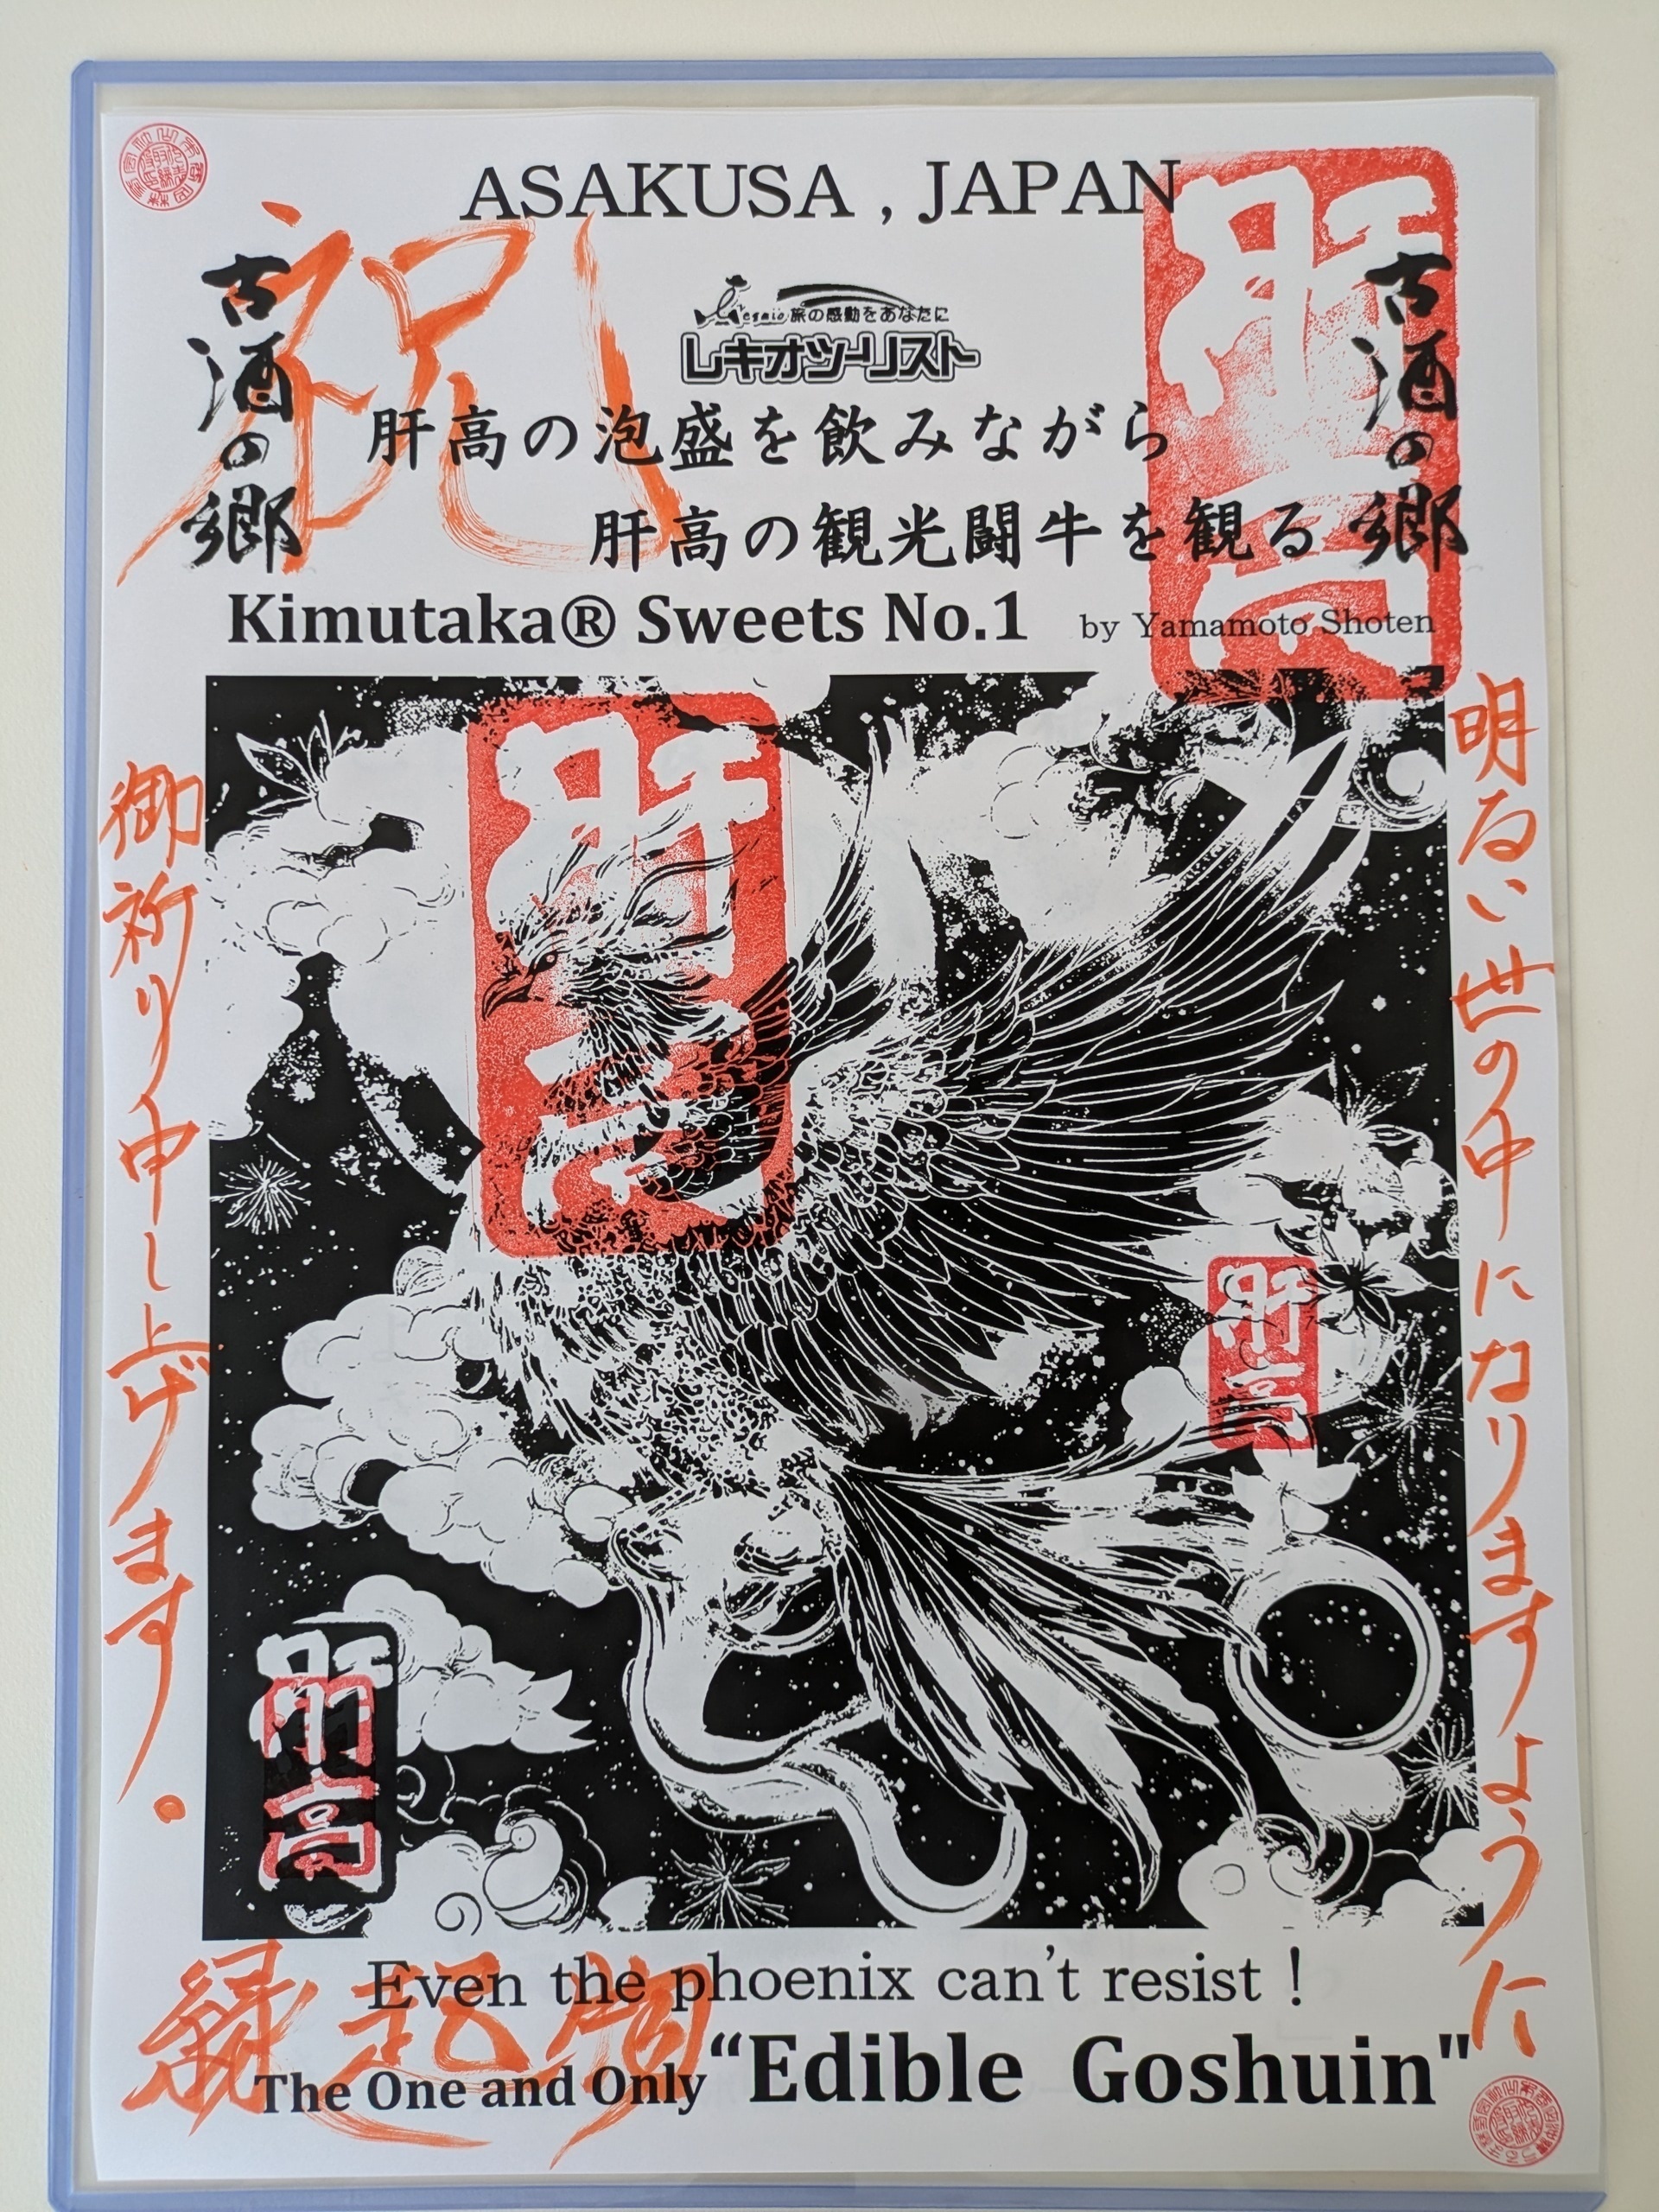 ASAKUSA , JAPAN
祝
古酒の郷
古酒の郷
旅の感動をあなたに
レキオツーリスト
肝高
肝高の泡盛を飲みながら
肝高の観光闘牛を観る
Kimutaka® Sweets No.1 by Yamamoto Shoten
明るい世の中になりますように
御祈り申し上げます。
肝高
肝高
肝高
肝高
Even the phoenix can't resist !
縁起物
The One and Only “Edible Goshuin"